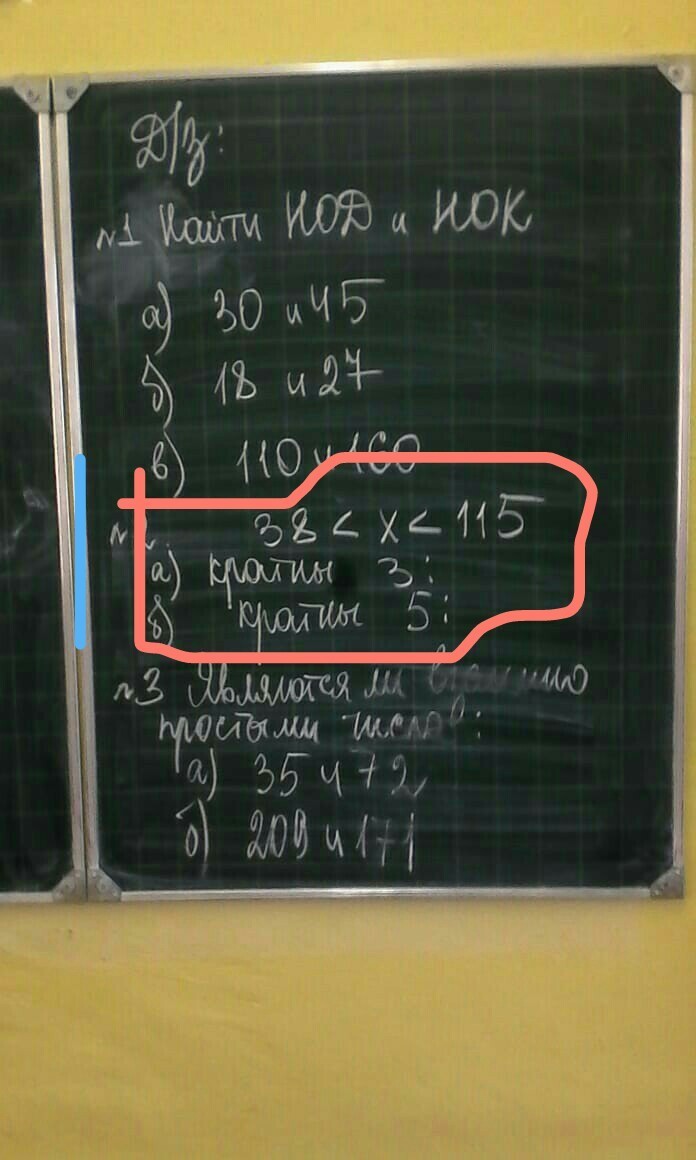 Д/з:
№1 Найти НОД и НОК
а) 30 и 45
б) 18 и 27
в) 110 и 160
№2. 38 < x < 115
а) кратны 3:
б) кратны 5:
№3 Являются ли взаимно
простыми числа:
а) 35 и 72
б) 209 и 171